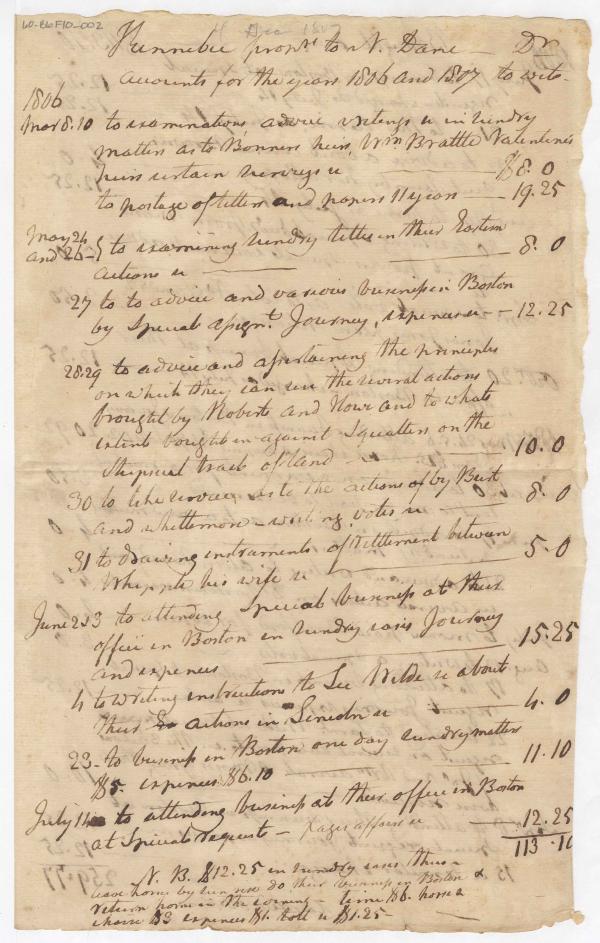 60-B6F10-002
Dec 1807
Kennebec propre to N. Dane — Dr
accounts for the years 1806 and 1807 to wit-
1806
Mar 8.10 to examinations advice writings &c in sundry
matters as to Bonners heirs, Wm Brattle Valentines
heirs certain surveys &c — $8.0
to postage of letters and papers 11 years — 19.25
May 24
and 26 - to examining sundry titles in their Eastern
actions &c — 8.0
27 to to advice and various business in Boston
by Special assignt. Journey, expenses &c - - 12.25
28.29 to advice and ascertaining the principles
on which they can use the several actions
brought by Roberts and Howe and to what
extent bought in against Squatters on the
tract of land — 10.0
30 to like service as to the actions of by
and Whittemore - writing votes &c — 8.0
31 to drawing instruments of settlement between
Whipple his wife &c — 5.0
June 2.3 to attending Special business at their
office in Boston in sundry cases Journey
and expenses — 15.25
4 to writing instructions to Lee Wilde &c about
their actions in Lincoln &c — 4.0
23 - to business in Boston one day sundry matters
$5. expenses $6.10 — 11.10
July 14 to attending business at their office in Boston
at Special request — affairs &c — 12.25
113.10
N.B. $12.25 in sundry cases thus -
leave home by sun rise do their business in Boston &
return home in the evening - time $6. horse &
chaise $3 expenses $1. toll &c $1.25 -